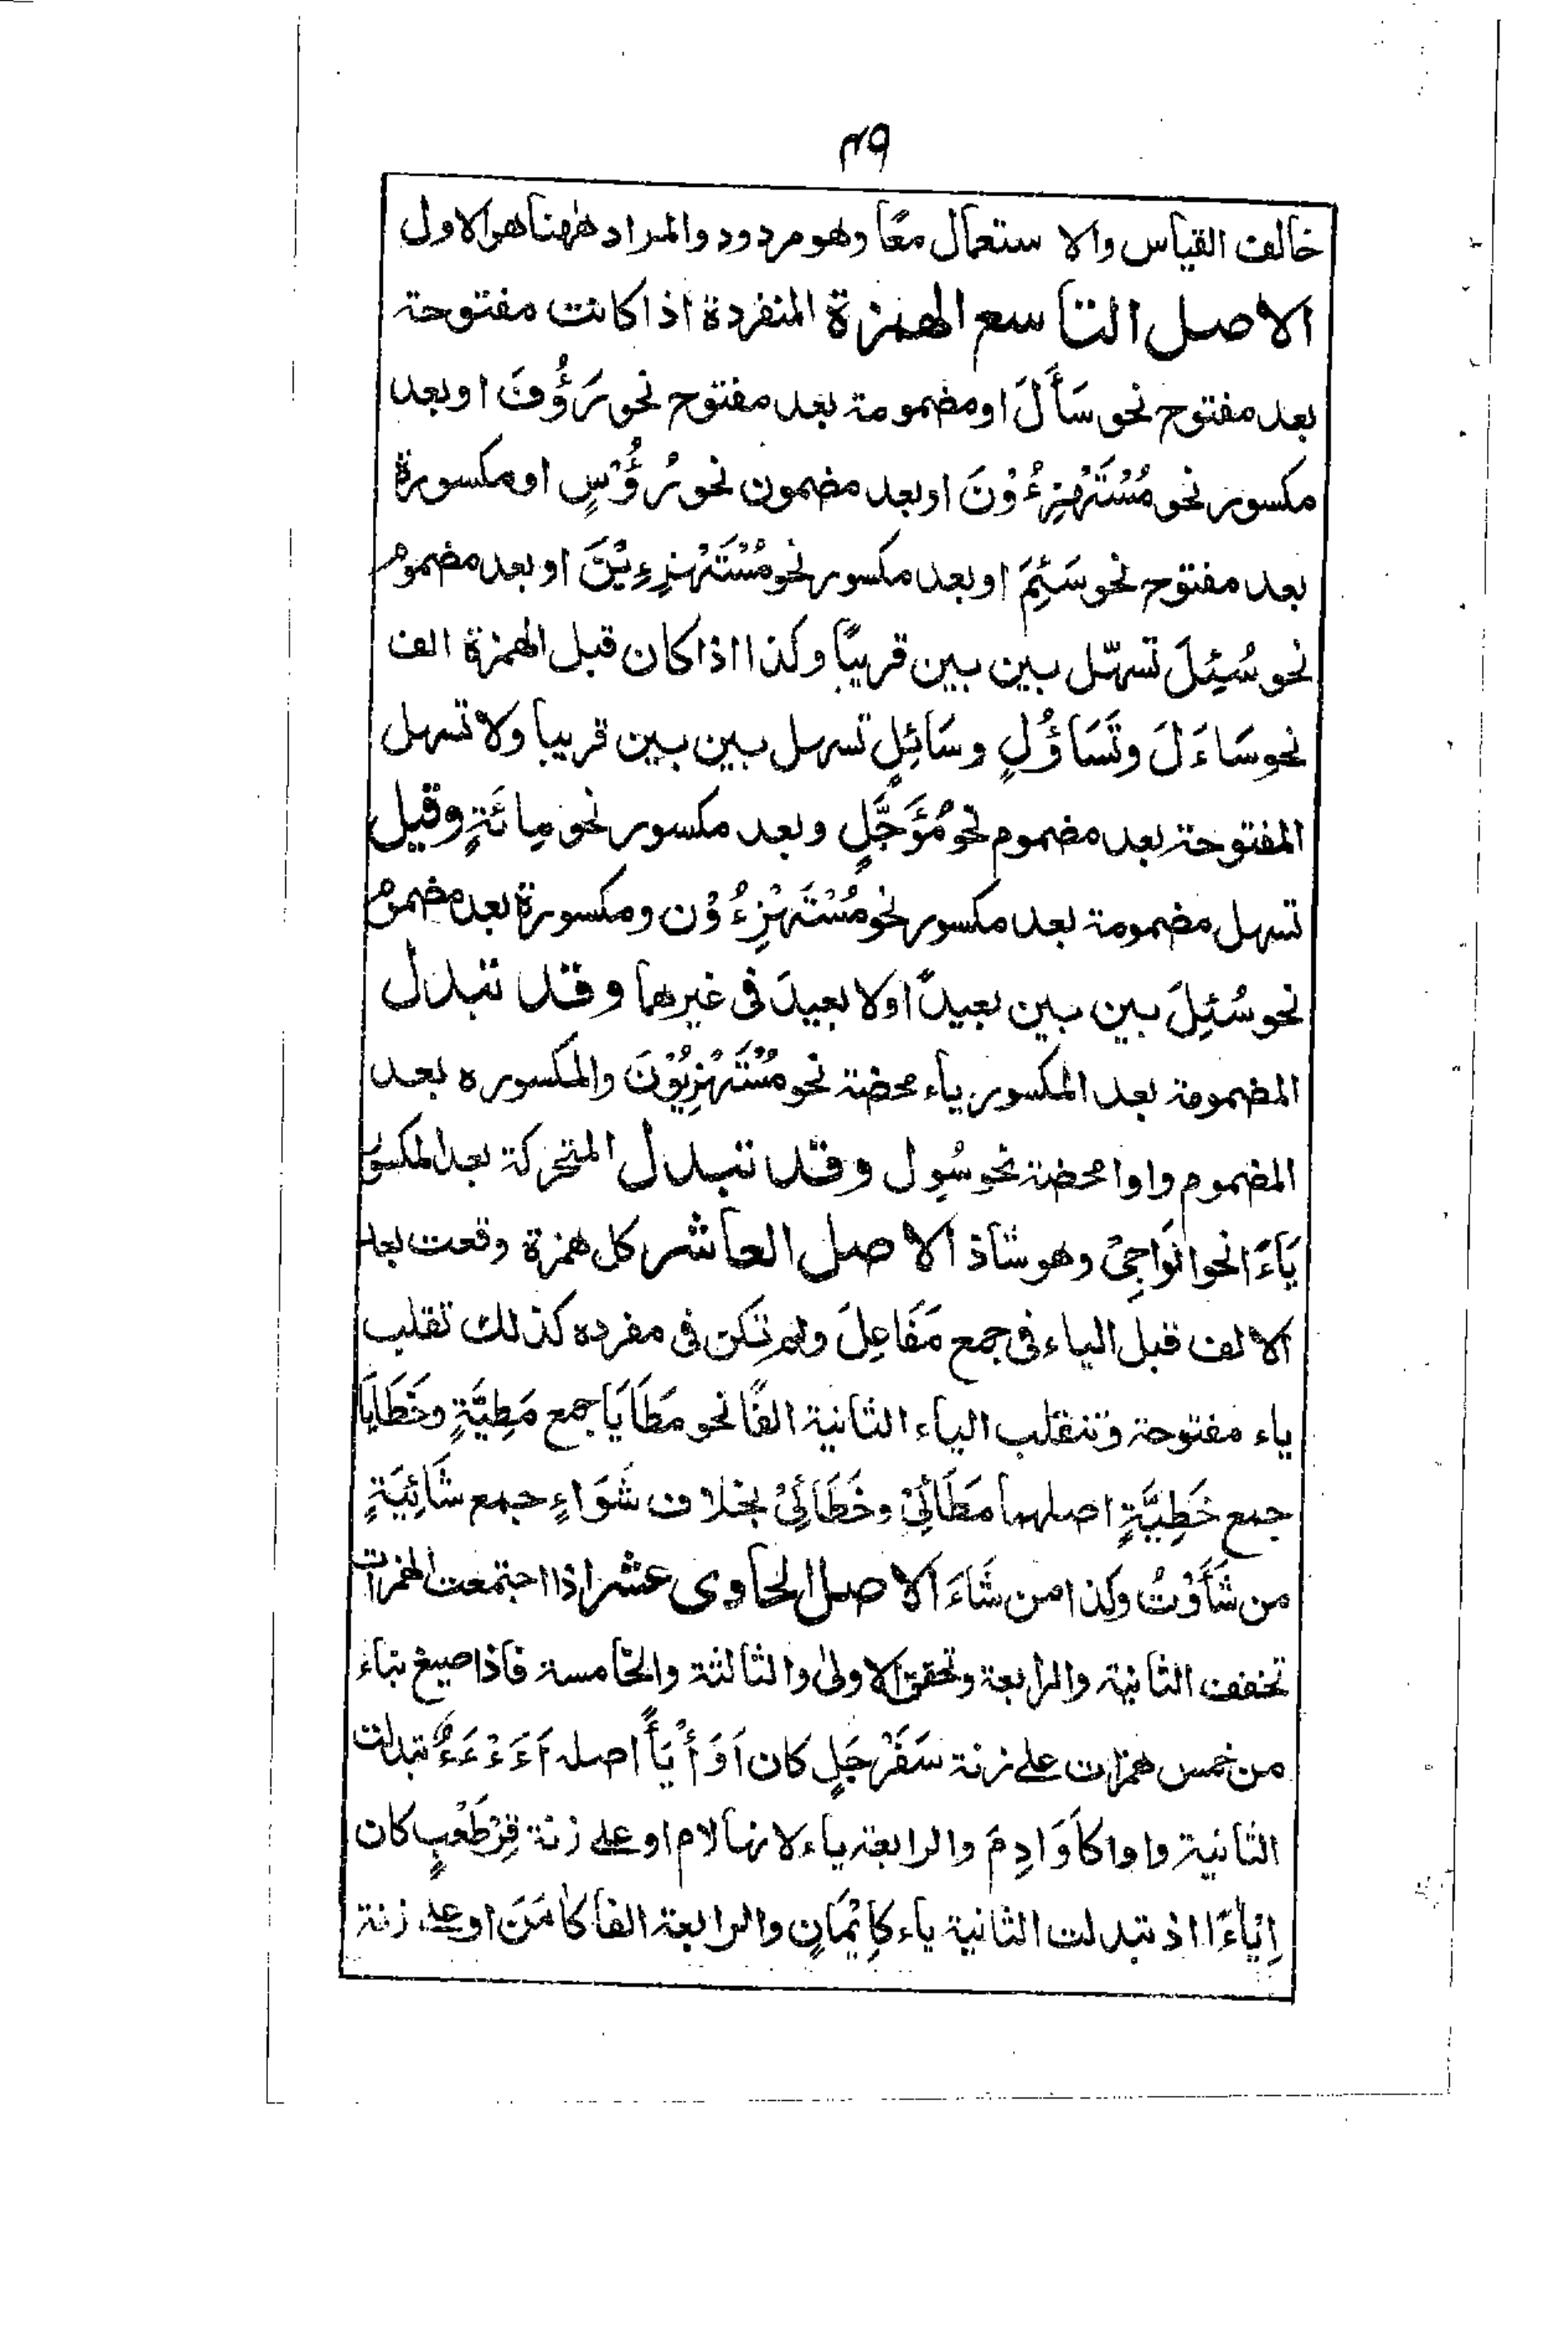 ٤٩
خالف القياس والاستعمال معًا وهو مردود والمراد ههنا هو الاول
الاصل التاسع الهمزة المنفردة اذا كانت مفتوحة
بعد مفتوح نحو سَأَلَ او مضمومة بعد مفتوح نحو رَؤُفَ او بعد
مكسور نحو مُسْتَهْزِءُوْنَ او بعد مضمون نحو رُؤُسٍ او مكسورة
بعد مفتوح نحو سَئِمَ او بعد مكسور نحو مُسْتَهْزِءِيْنَ او بعد مضموم
نحو سُئِلَ تسهّل بين بين قريبًا وكذا اذا كان قبل الهمزة الف
نحو سَاءَلَ وتَسَاؤُلٍ وسَائِلٍ تسهل بين بين قريبا ولا تسهل
المفتوحة بعد مضموم نحو مُؤَجَّلٍ وبعد مكسور نحو مِائَةٍ وقيل
تسهل مضمومة بعد مكسور نحو مُسْتَهْزِءُوْن ومكسورة بعد مضموم
نحو سُئِلَ بين بين بعيدًا ولا بعيدَ فى غيرهما وقد تبدل
المضمومة بعد المكسور ياء محضة نحو مُسْتَهْزِيُوْنَ والمكسوره بعد
المضموم واوا محضة نحو سُوِل وقد تبدل المتحركة بعد المكسور
يَاءً نحو انوَاجِىْ وهو شاذ الاصل العاشر كل همزة وقعت بعد
الالف قبل الياء فى جمع مَفَاعِلَ ولم تكن فى مفرده كذلك تقلب
ياء مفتوحة وتنقلب الياء الثانية الفًا نحو مَطَايَا جمع مَطِيَّةٍ وخَطَايَا
جمع خَطِيَّةٍ اصلهما مَطَائِىْ وخَطَائِىْ بخلاف شَوَاءٍ جمع شَائِيَةٍ
من شَأَوْتُ وكذا من شَاءَ الاصل الحادى عشر اذا اجتمعت الهمزات
تخفف الثانية والرابعة وتحقق الاولىٰ والثالثة والخامسة فاذا صيغ بناء
من خمس همزات على زنة سَفَرْجَلٍ كان اَوَأْيَأٌ اصله اَءَءْءَءٌ تبدلت
الثانية واوا كاَوَادِمَ والرابعة ياء لانها لام او على زنة قِرْطَعْبٍ كان
اِيْاَءًا اذ تبدلت الثانية ياء كاِيْمَانٍ والرابعة الفا كاٰمَنَ او على زنة